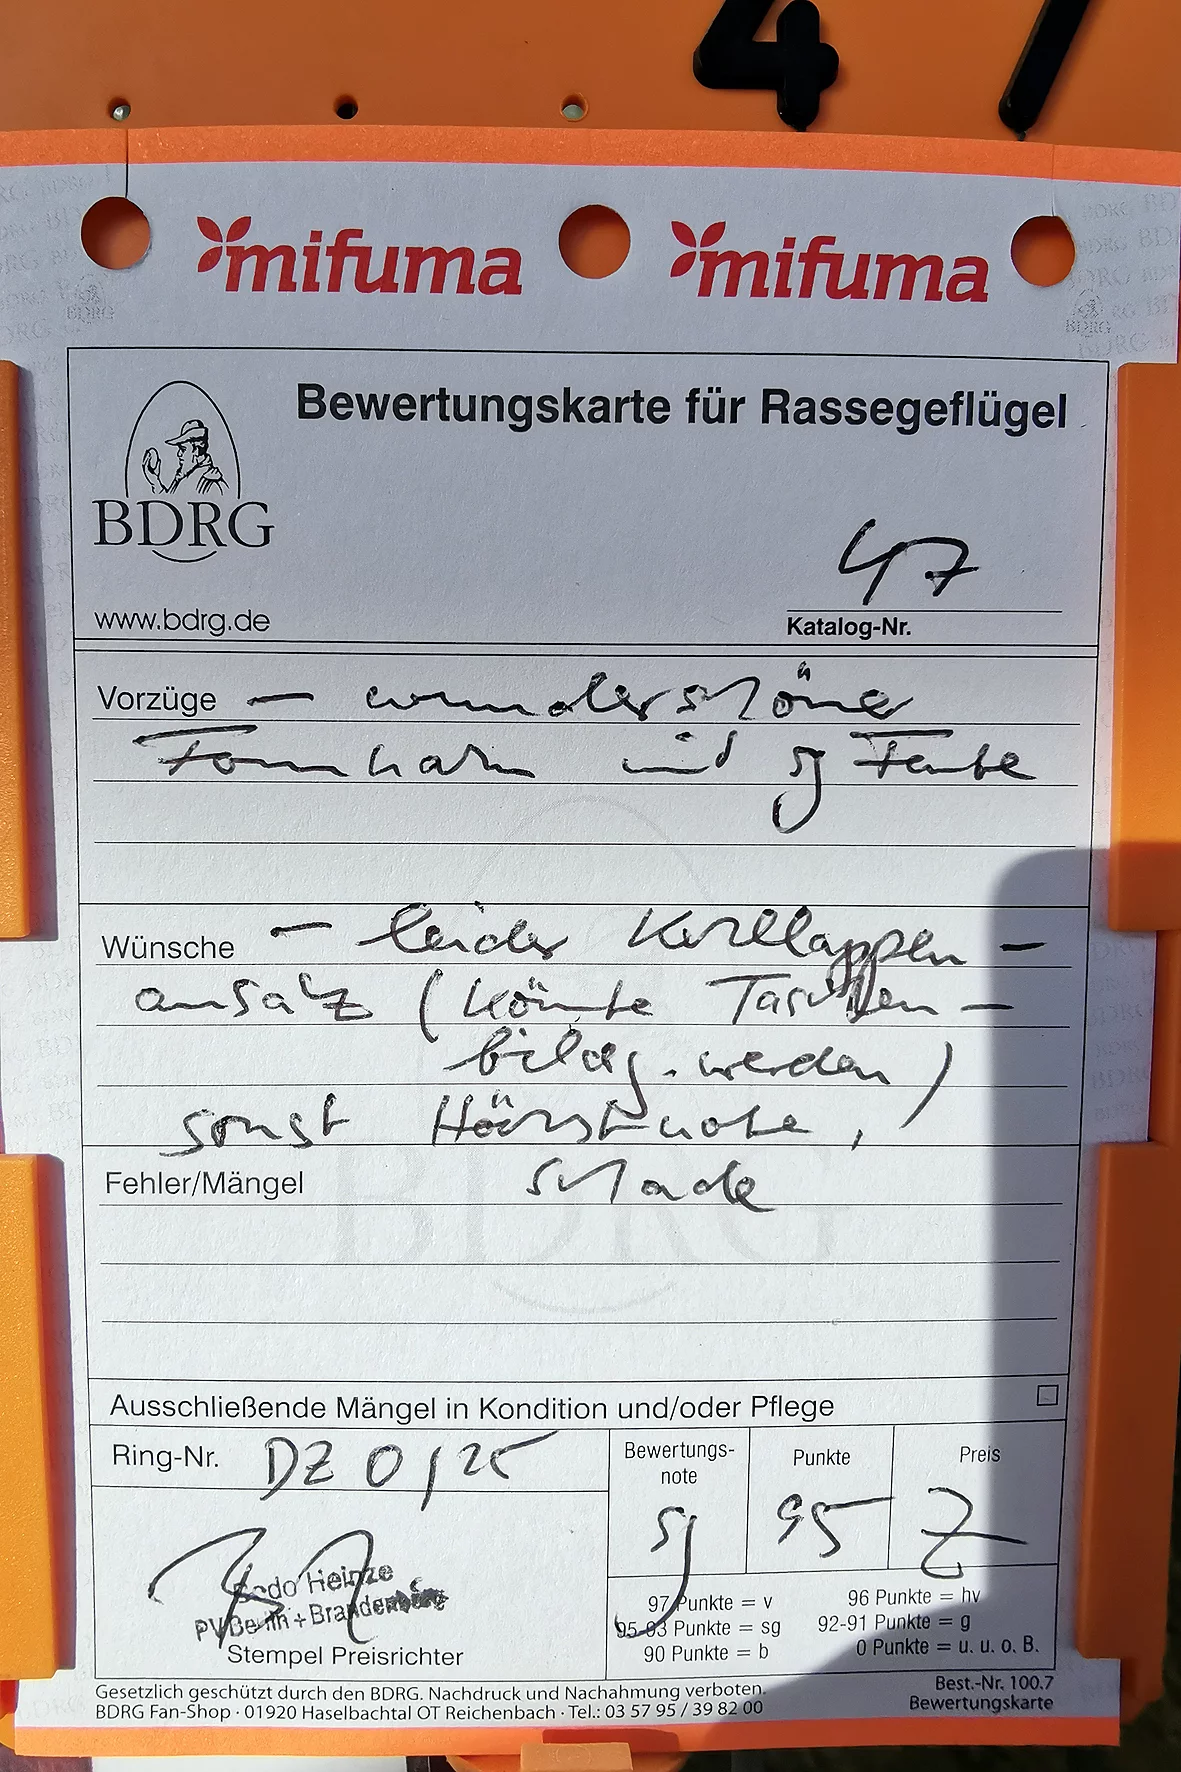 47
mifuma mifuma
Bewertungskarte für Rassegeflügel
BDRG
www.bdrg.de
47
Katalog-Nr.
Vorzüge – wunderschöne
Formhahn mit sg Farbe
Wünsche – leider Kehllappen-
ansatz (könnte Taschen-
bildg. werden)
sonst Höchstnote,
schade
Fehler/Mängel
Ausschließende Mängel in Kondition und/oder Pflege
Ring-Nr. DZ 0/25
Bewertungs-
note
Punkte
Preis
sg 95 Z
Bodo Heinze
PV Berlin + Brandenburg
Stempel Preisrichter
97 Punkte = v 96 Punkte = hv
95-93 Punkte = sg 92-91 Punkte = g
90 Punkte = b 0 Punkte = u. u. o. B.
Gesetzlich geschützt durch den BDRG. Nachdruck und Nachahmung verboten.
BDRG Fan-Shop · 01920 Haselbachtal OT Reichenbach · Tel.: 03 57 95 / 39 82 00
Best.-Nr. 100.7
Bewertungskarte